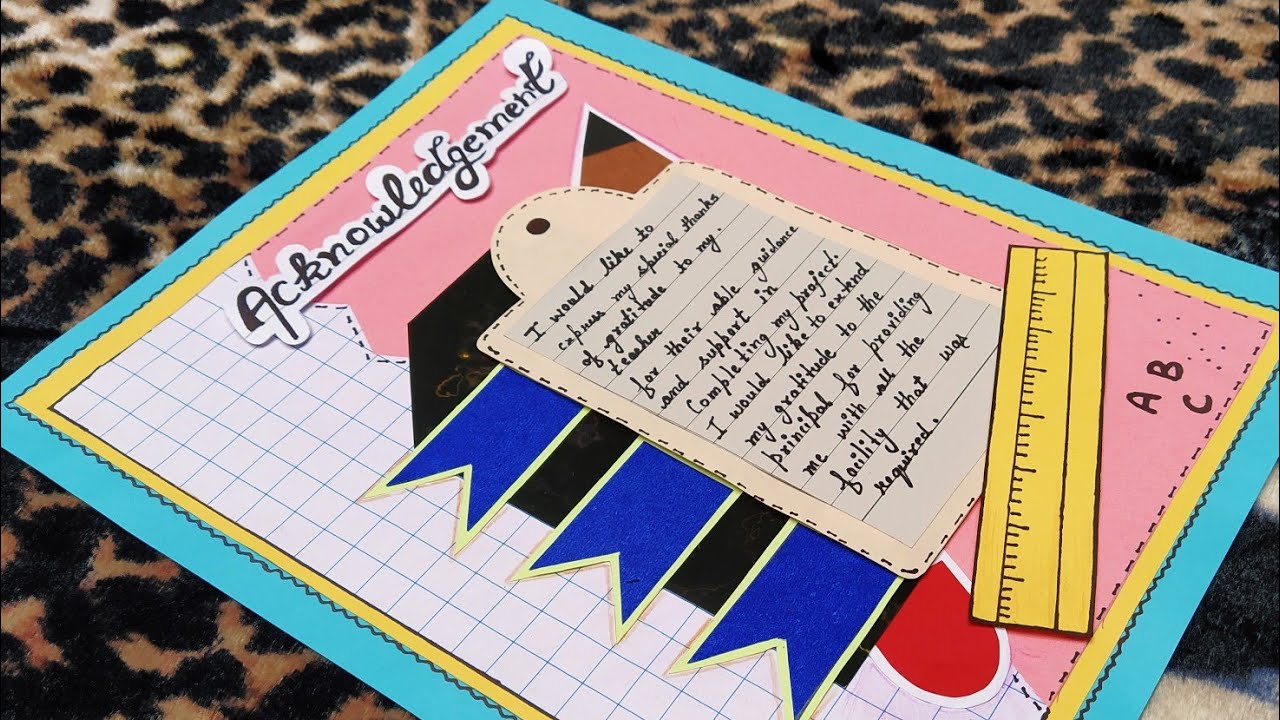 Acknowledgement
I would like to
express my special thanks
of gratitude to my.
teacher
for their able guidance
and support in
Completing my project.
I would like to extend
my gratitude to the
principal for providing
me with all the
facility that was
required.
A B
C